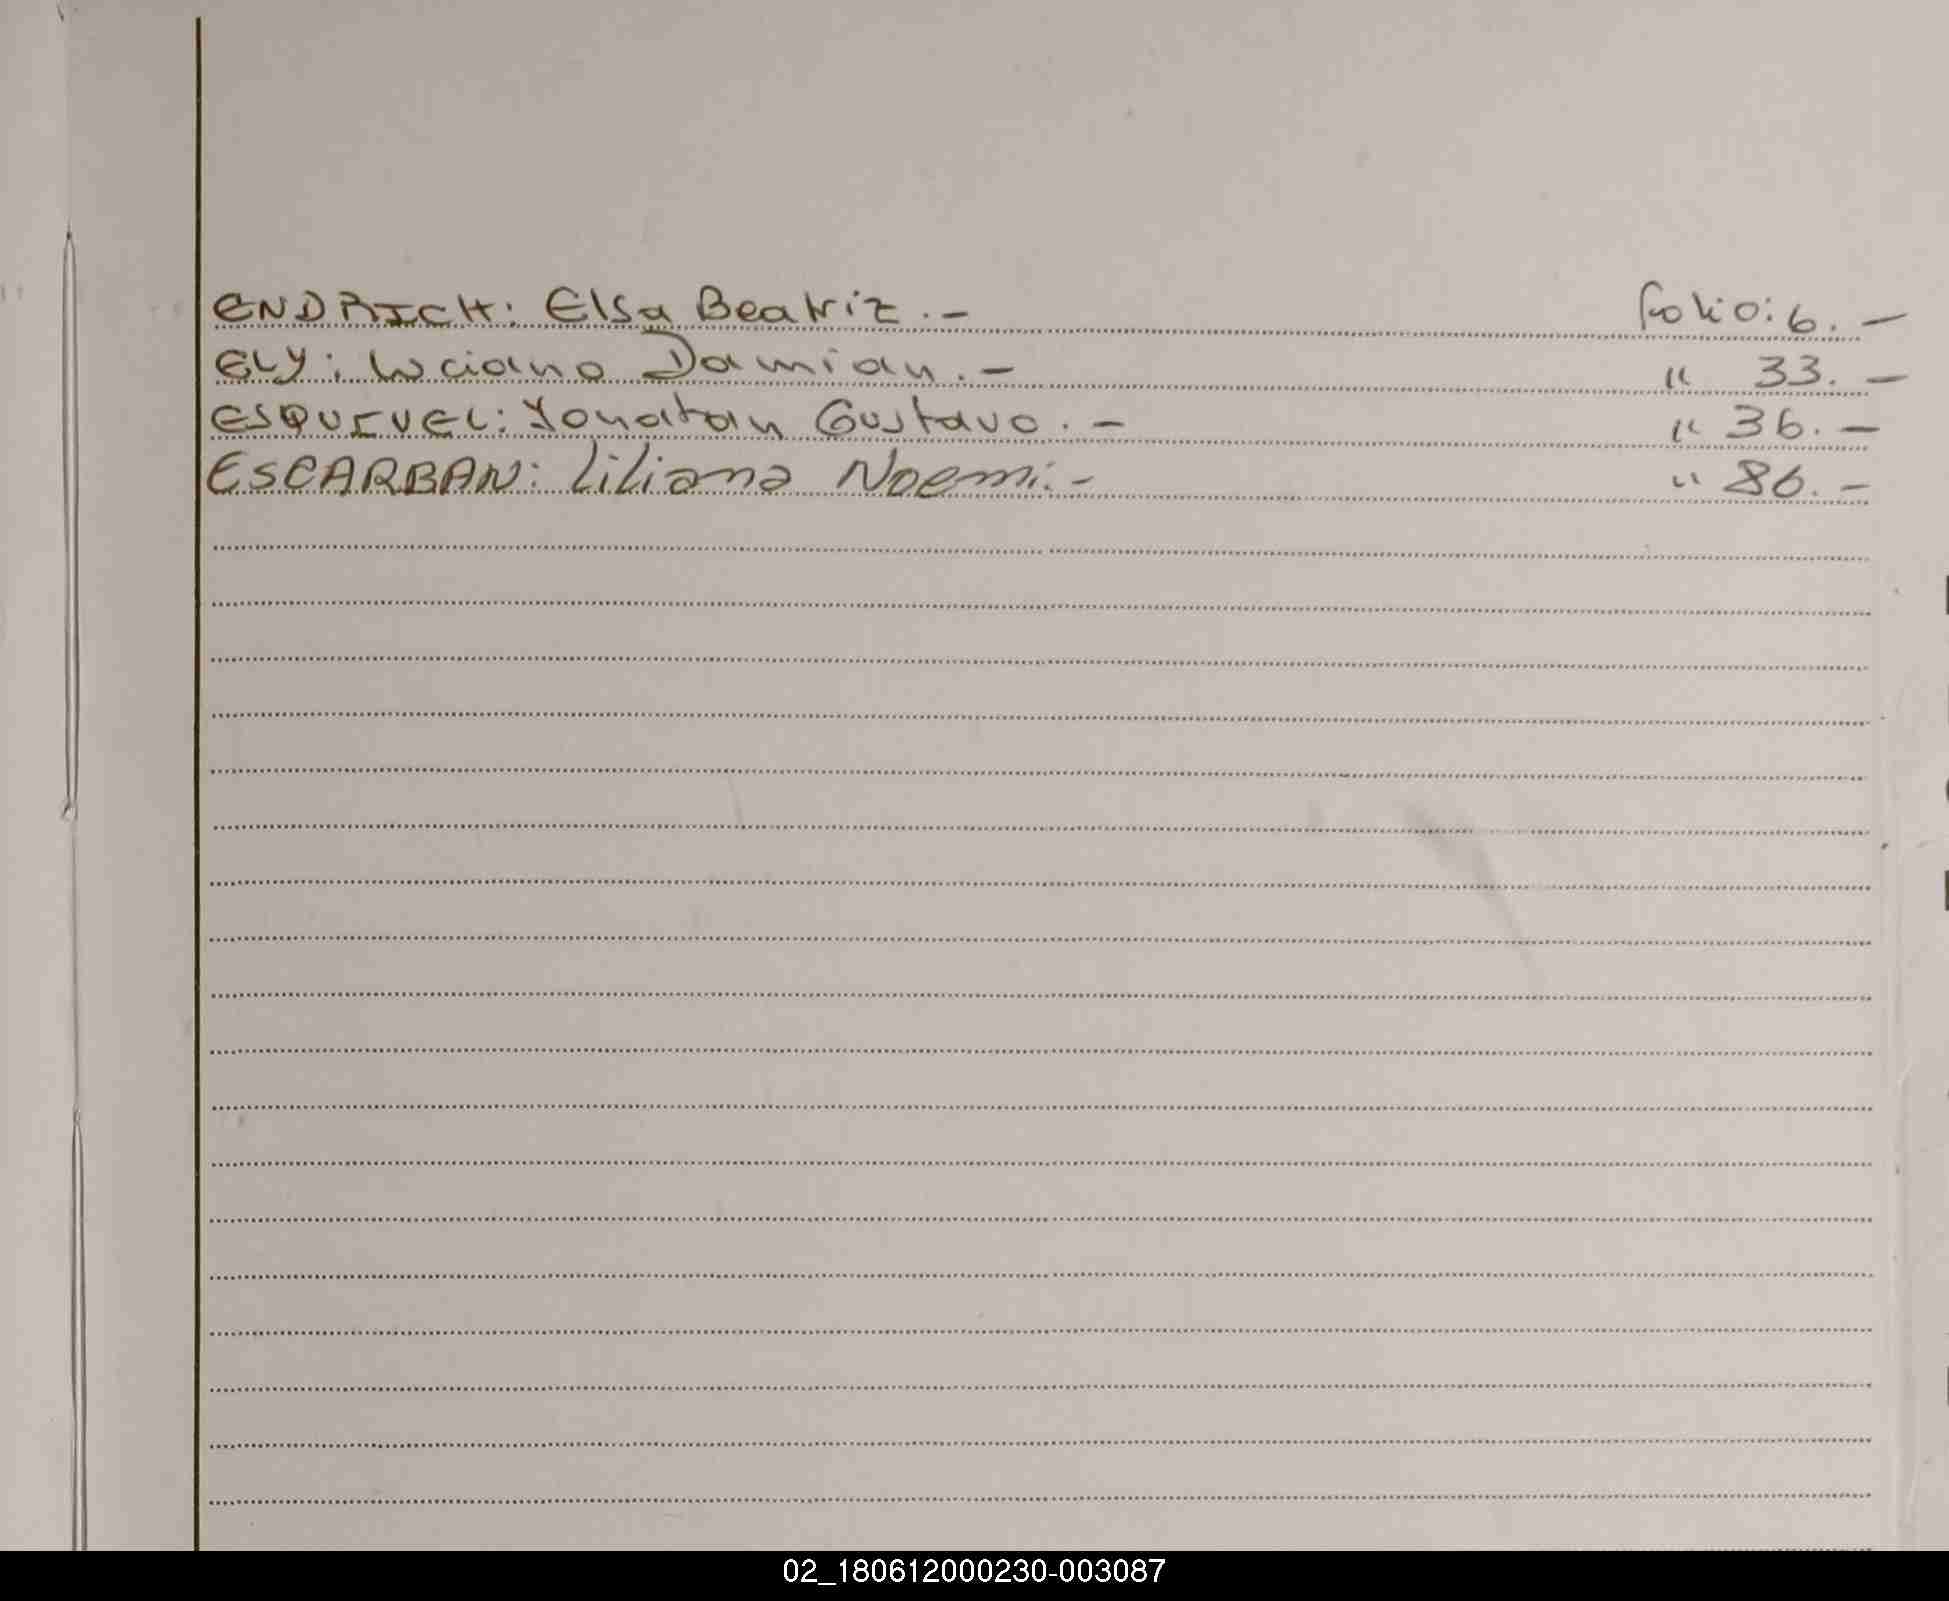 ENDRICH: Elsa Beatriz.- folio: 6.-
ELY: Luciano Damian.- " 33.-
ESQUIVEL: Yonatan Gustavo.- " 36.-
ESCARBAN: Liliana Noemi.- " 86.-
02_180612000230-003087